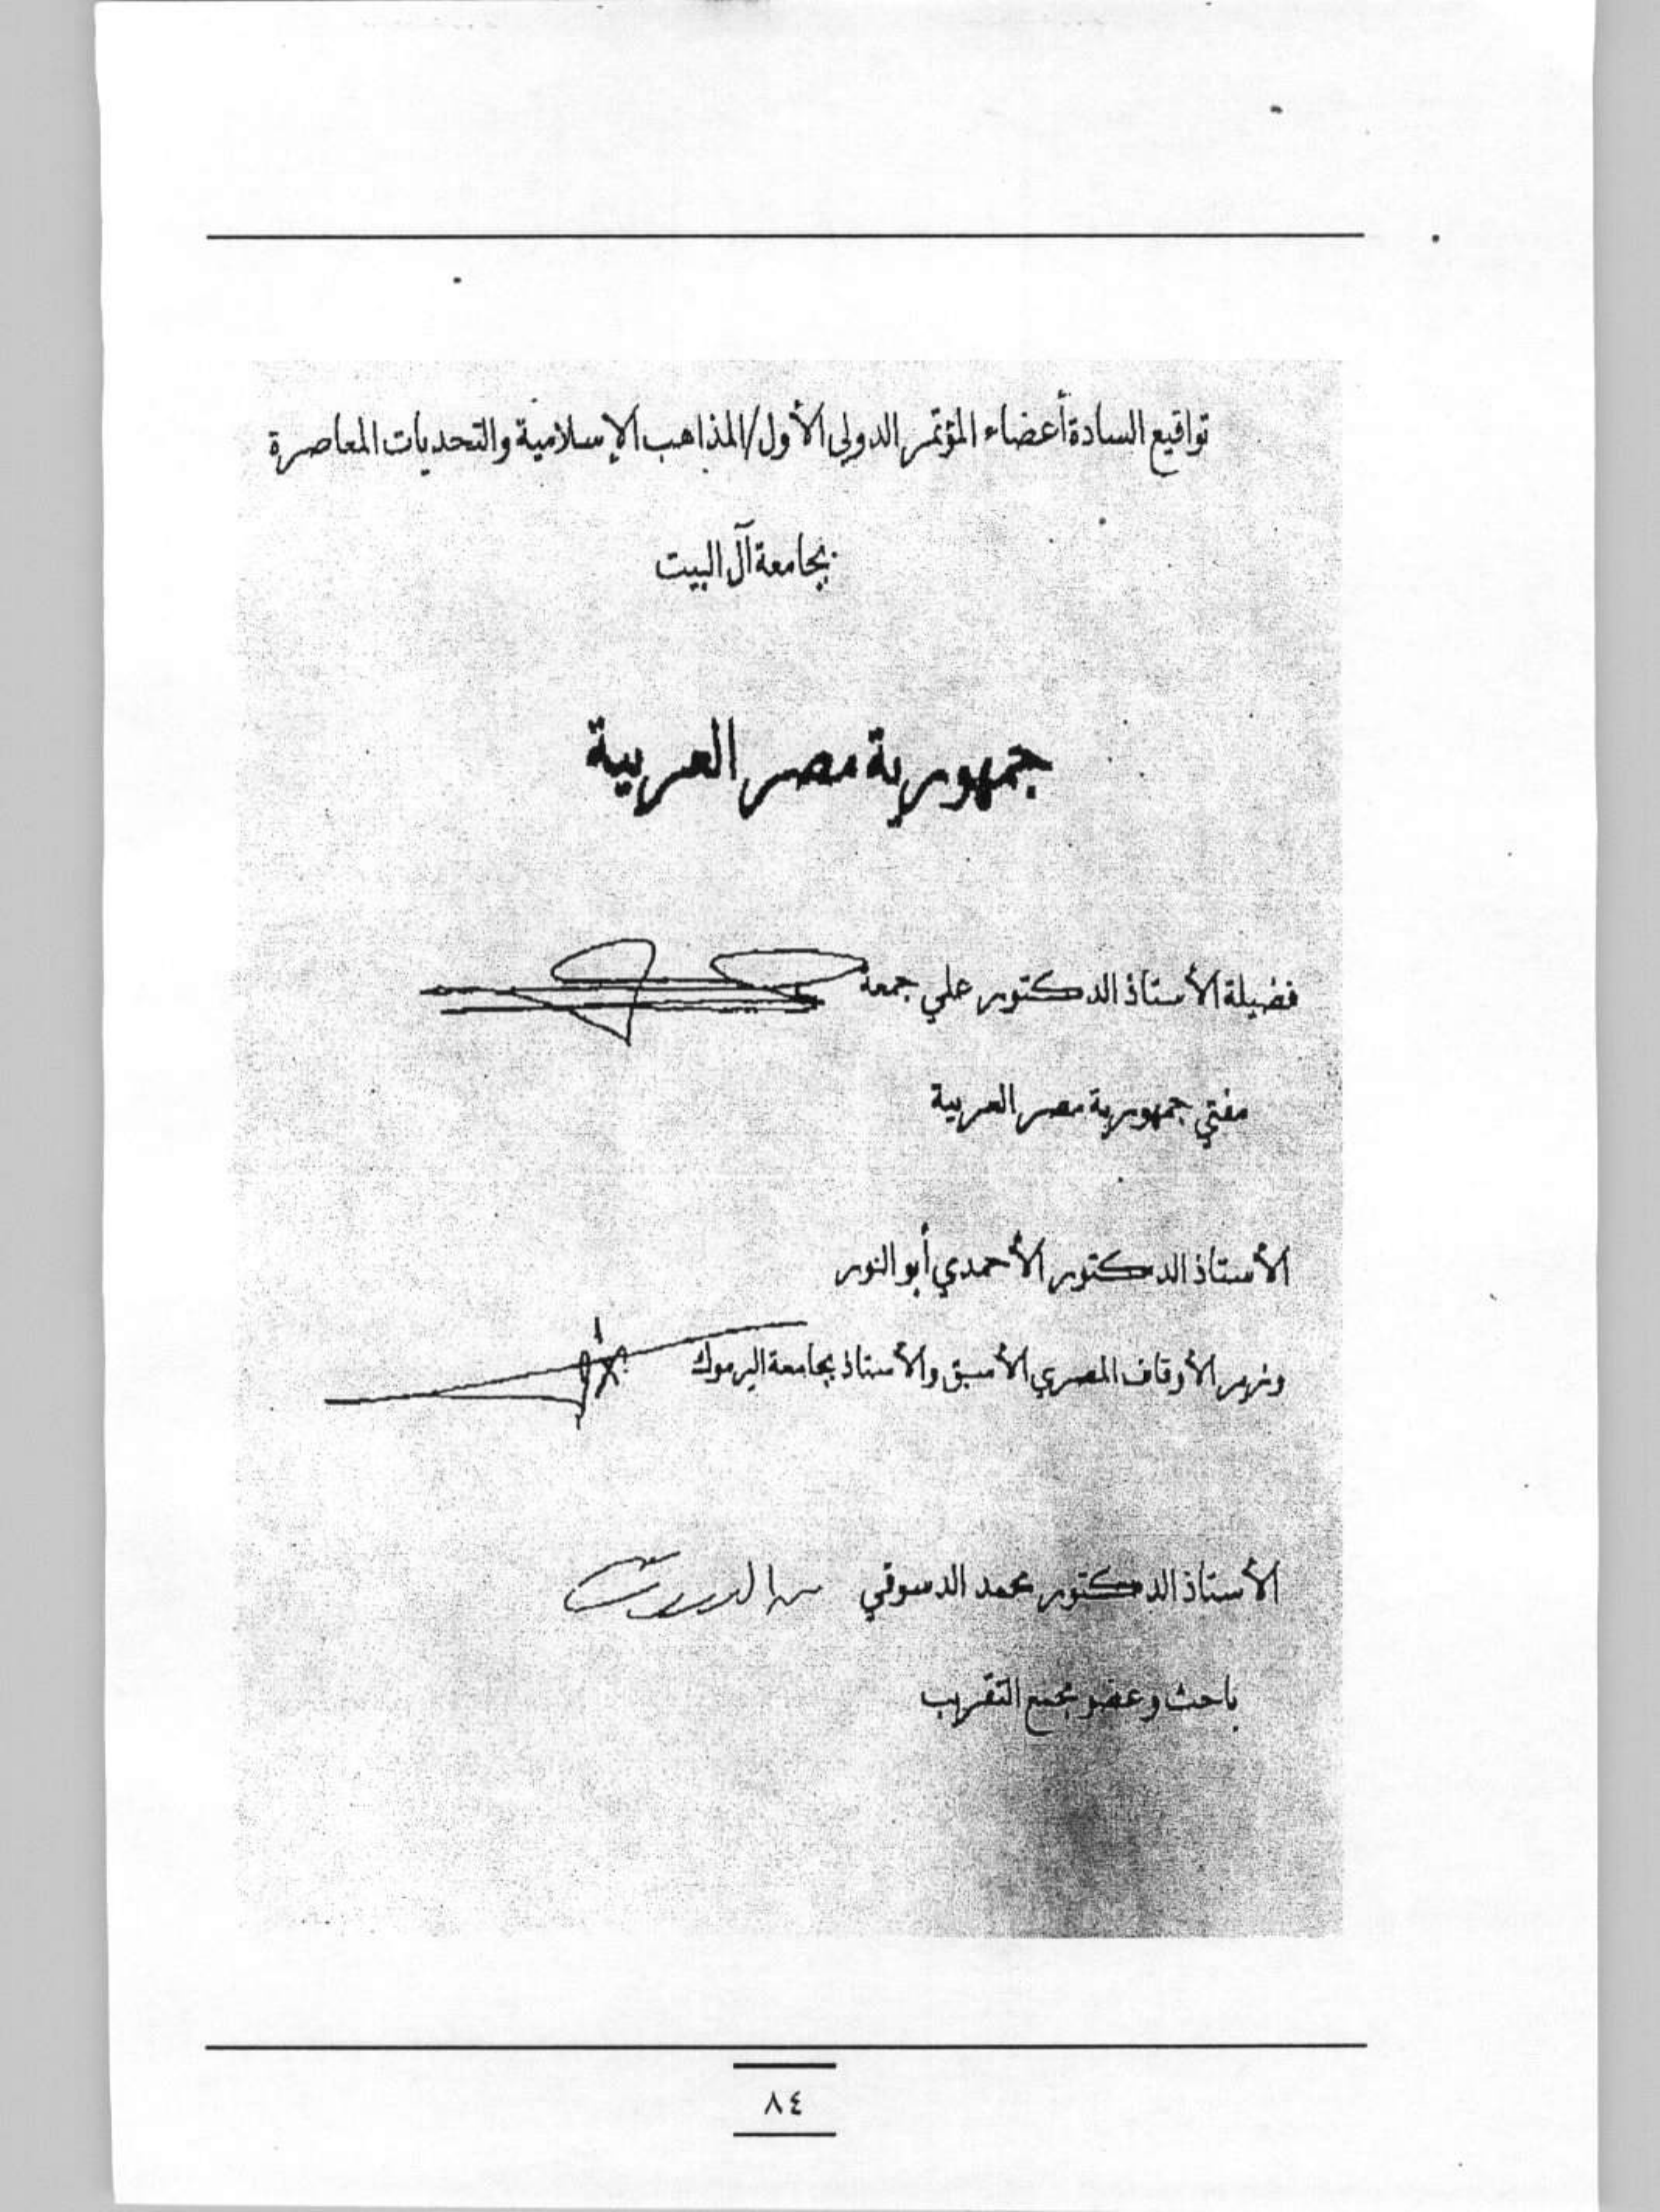 تواقيع السادة أعضاء المؤتمر الدولي الأول/المذاهب الإسلامية والتحديات المعاصرة
بجامعة آل البيت
جمهورية مصر العربية
فضيلة الأستاذ الدكتور علي جمعة
مفتي جمهورية مصر العربية
الأستاذ الدكتور الأحمدي أبو النور
وزير الأوقاف المصري الأسبق والأستاذ بجامعة اليرموك
الأستاذ الدكتور محمد الدسوقي
باحث وعضو مجمع التقريب
٨٤